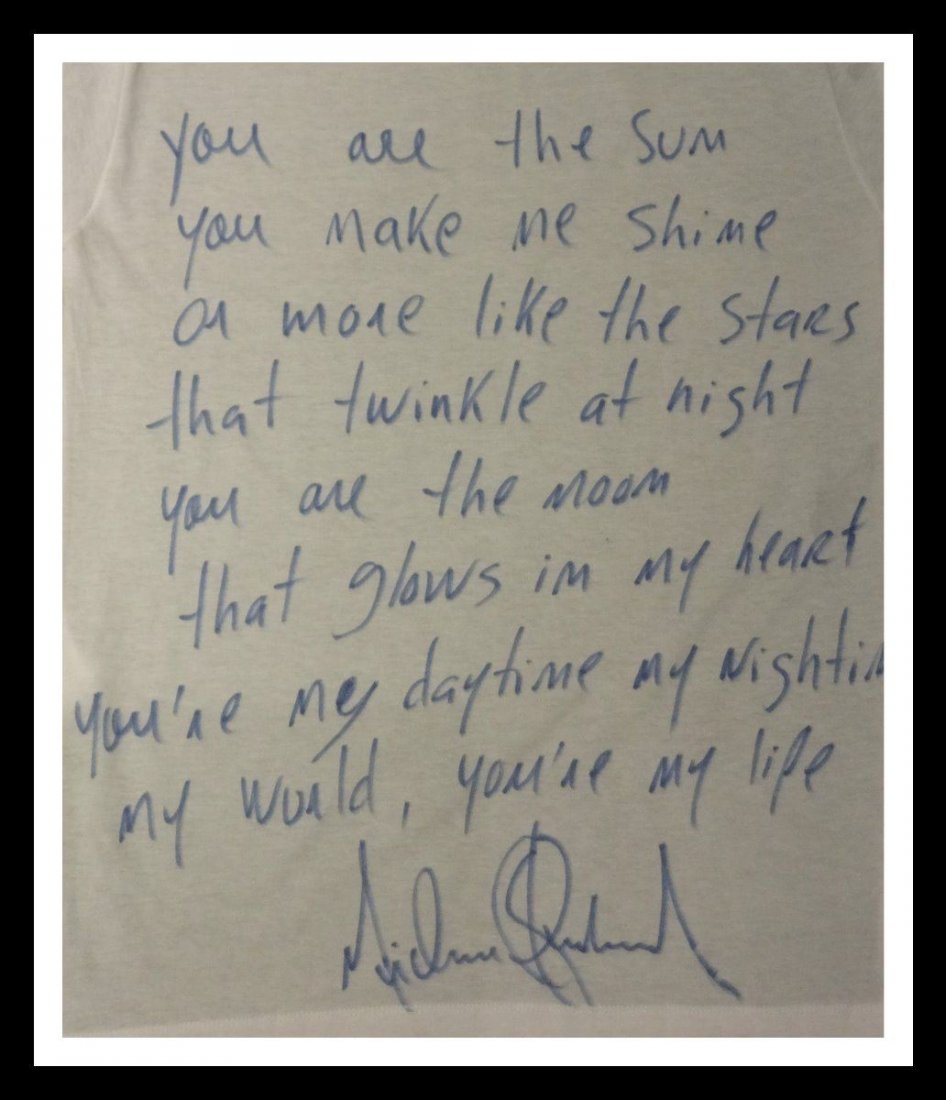 you are the sun
you make me shine
or more like the stars
that twinkle at night
you are the moon
that glows in my heart
you're my daytime my nightim
my world, you're my life